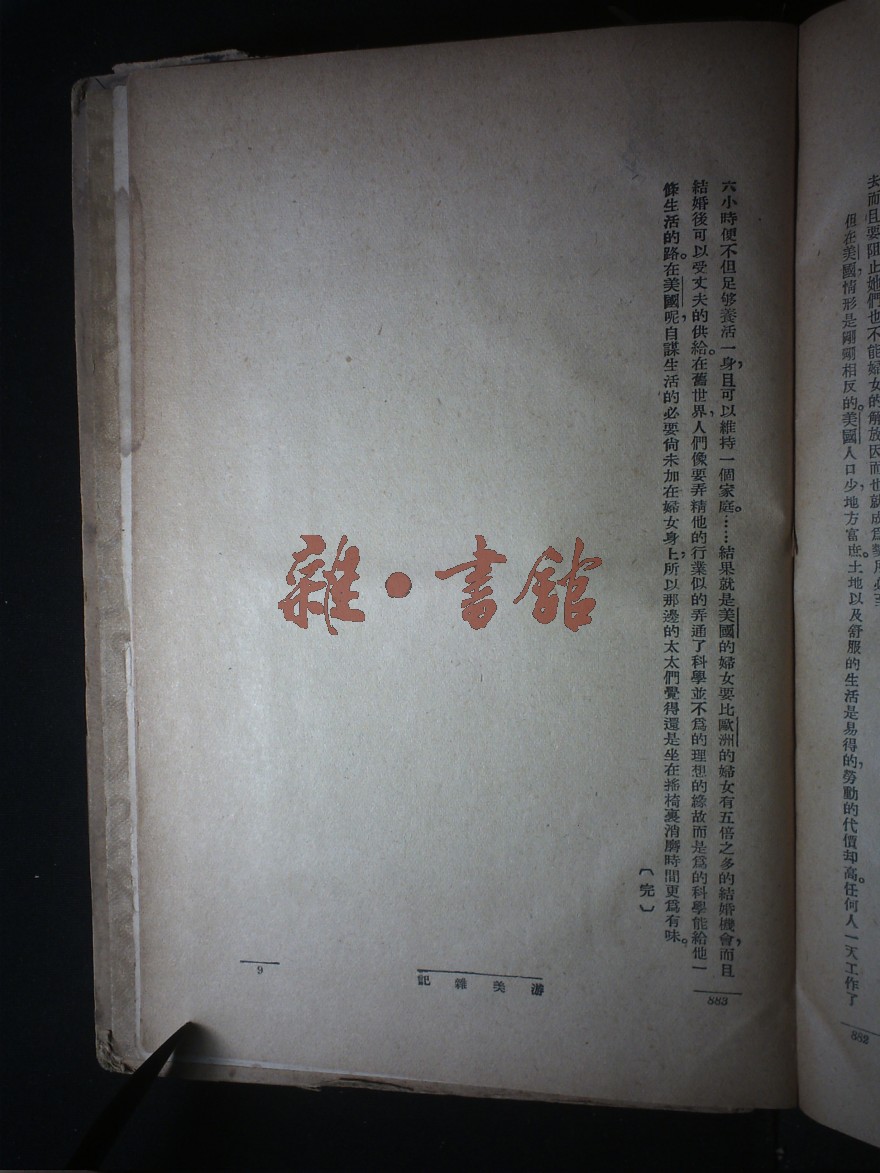 夫而且要阻止她們也不能婦女的解放因而也就成爲勢所必至
但在美國，情形是剛剛相反的。美國人口少，地方富庶。土地以及舒服的生活是易得的，勞動的代價却高。任何人一天工作了
882
六小時便不但足够養活一身，且可以維持一個家庭。……結果就是美國的婦女要比歐洲的婦女有五倍之多的結婚機會，而且
結婚後可以受丈夫的供給。在舊世界，人們像要弄精他的行業似的弄通了科學並不爲的理想的緣故而是爲的科學能給他一
條生活的路。在美國呢，自謀生活的必要尙未加在婦女身上，所以那邊的太太們覺得還是坐在搖椅裏消磨時間更爲有味。
〔完〕
883
游美雜記
9
雜·書館